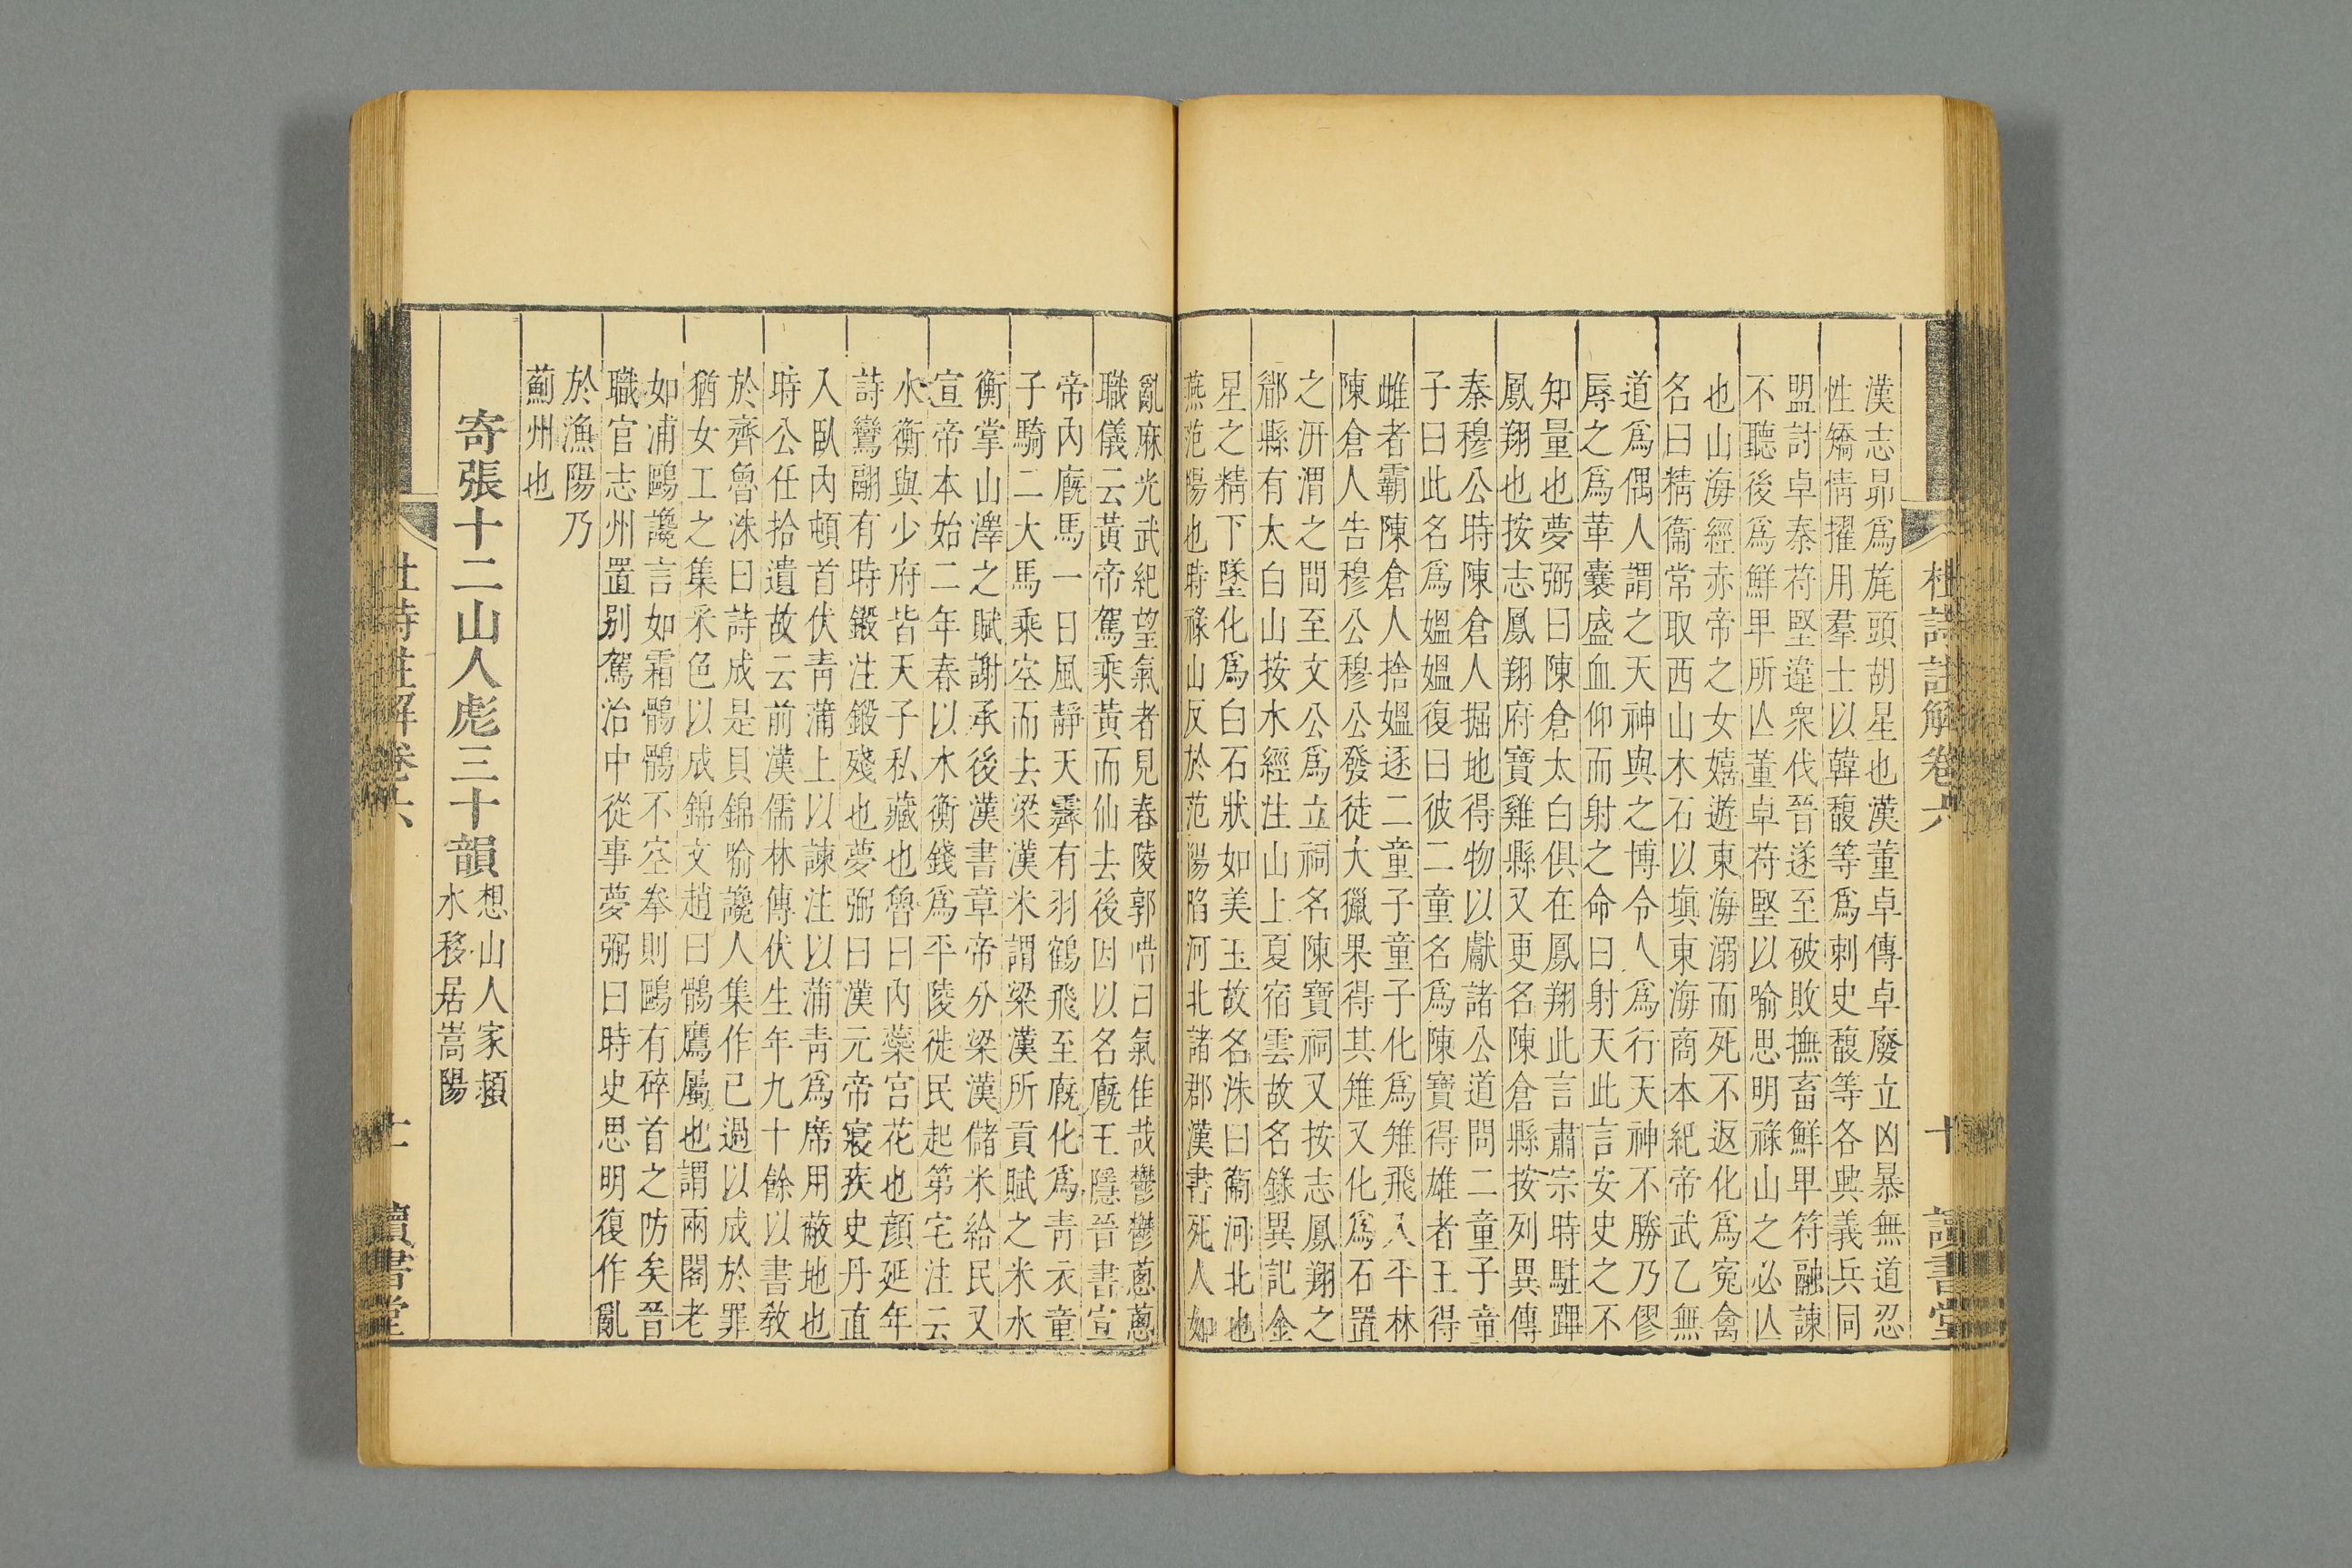 漢志昴爲旄頭胡星也漢董卓傳卓廢立凶暴無道忍
性矯情擢用羣士以韓馥等爲刺史馥等各興義兵同
盟討卓秦苻堅違衆伐晉遂至破敗撫畜鮮卑符融諫
不聽後爲鮮卑所亾董卓苻堅以喻思明祿山之必亾
也山海經赤帝之女嬉遊東海溺而死不返化爲寃禽
名曰精衞常取西山木石以塡東海商本紀帝武乙無
道爲偶人謂之天神與之博令人爲行天神不勝乃僇
辱之爲革囊盛血仰而射之命曰射天此言安史之不
知量也夢弼曰陳倉太白俱在鳳翔此言肅宗時駐蹕
鳳翔也按志鳳翔府寶雞縣又更名陳倉縣按列異傳
秦穆公時陳倉人掘地得物以獻諸公道問二童子童
子曰此名爲媼媼復曰彼二童名爲陳寶得雄者王得
雌者霸陳倉人捨媼逐二童子童子化爲雉飛入平林
陳倉人告穆公穆公發徒大獵果得其雉又化爲石置
之汧渭之間至文公爲立祠名陳寶祠又按志鳳翔之
郿縣有太白山按水經注山上夏宿雲故名錄異記金
星之精下墜化爲白石狀如美玉故名洙曰衞河北也
燕范陽也時祿山反於范陽陷河北諸郡漢書死人如
杜詩註解卷六
十
讀書堂
亂麻光武紀望氣者見舂陵郭唶曰氣佳哉鬱鬱蔥蔥
職儀云黃帝駕乘黃而仙去後因以名廐王隱晉書宣
帝內廐馬一日風靜天霽有羽鶴飛至廐化爲靑衣童
子騎二大馬乘空而去梁漢米謂梁漢所貢賦之米水
衡掌山澤之賦謝承後漢書章帝分梁漢儲米給民又
宣帝本始二年春以水衡錢爲平陵徙民起第宅注云
水衡與少府皆天子私藏也魯曰內蘂宮花也顏延年
詩鸞翮有時鎩注鍛殘也夢弼曰漢元帝寢疾史丹直
入臥內頓首伏靑蒲上以諫注以蒲靑爲席用蔽地也
時公任拾遺故云前漢儒林傳伏生年九十餘以書敎
於齊魯洙曰詩成是貝錦喻讒人集作已過以成於罪
猶女工之集采色以成錦文趙曰鶻鷹屬也謂兩閣老
如浦鷗讒言如霜鶻鶻不空拳則鷗有碎首之防矣晉
職官志州置別駕治中從事夢弼曰時史思明復作亂
於漁陽乃
薊州也
寄張十二山人彪三十韻
想山人家潁
水移居嵩陽
杜詩註解卷六
十一
讀書堂